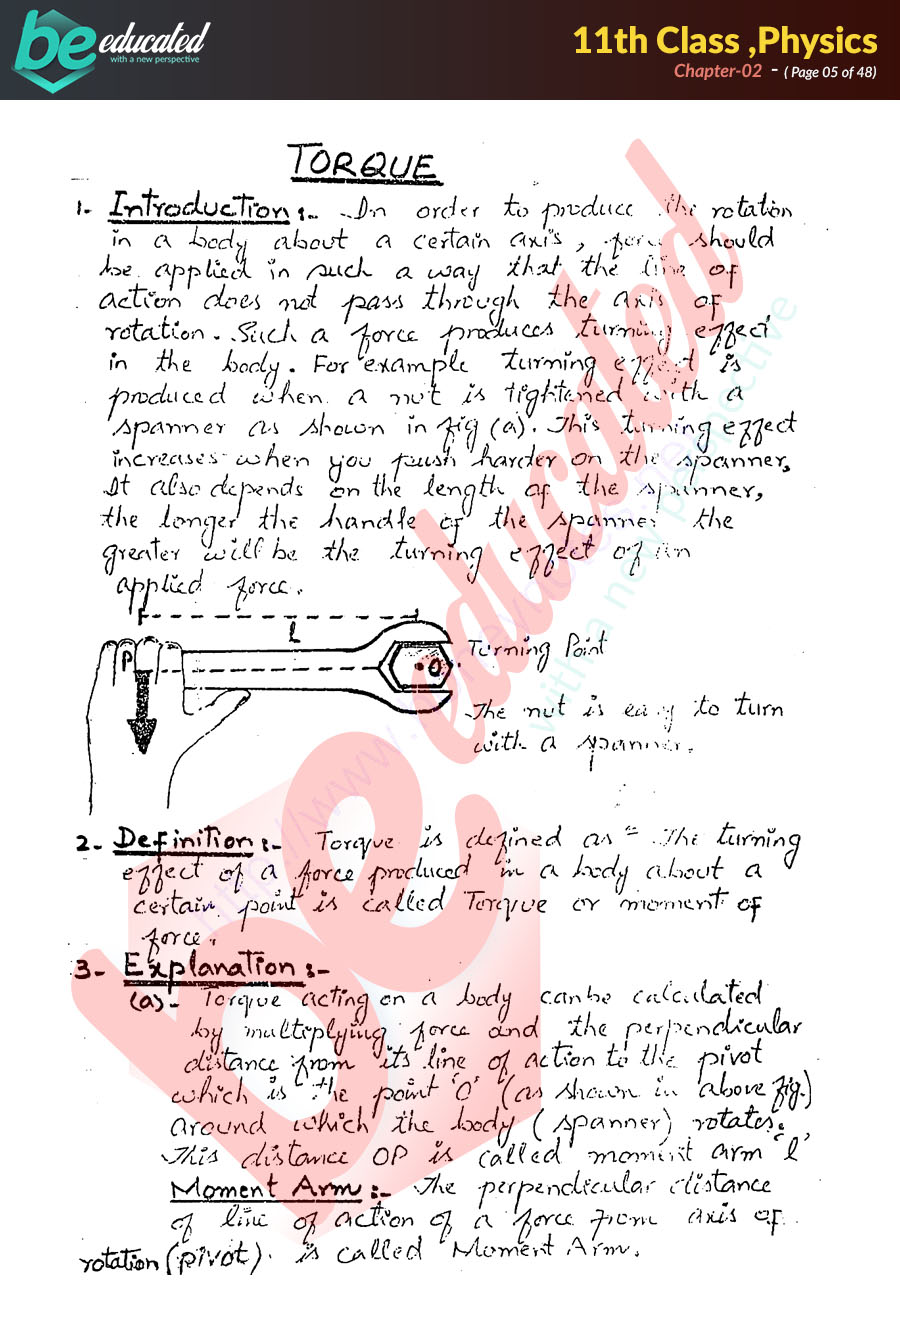 be educated
with a new perspective
11th Class ,Physics
Chapter-02 - ( Page 05 of 48)
TORQUE
1- Introduction :- In order to produce the rotation
in a body about a certain axis, force should
be applied in such a way that the line of
action does not pass through the axis of
rotation. Such a force produces turning effect
in the body. For example turning effect is
produced when a nut is tightened with a
spanner as shown in fig (a). This turning effect
increases when you push harder on the spanner.
It also depends on the length of the spanner,
the longer the handle of the spanner the
greater will be the turning effect of an
applied force.
L
P
O
Turning Point
The nut is easy to turn
with a spanner.
2- Definition :- Torque is defined as " The turning
effect of a force produced in a body about a
certain point is called Torque or moment of
force.
3- Explanation :-
(a)- Torque acting on a body can be calculated
by multiplying force and the perpendicular
distance from its line of action to the pivot
which is the point 'O' (as shown in above fig.)
around which the body (spanner) rotates.
This distance OP is called moment arm 'l'
Moment Arm :- The perpendicular distance
of line of action of a force from axis of
rotation (pivot) is called Moment Arm.
be educated
with a new perspective